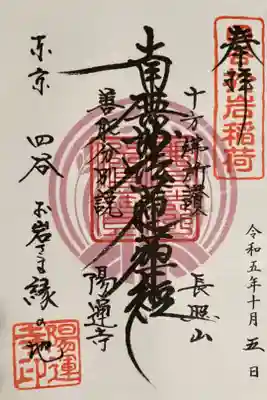 奉拝
令和五年十月五日
十方諸所讃
長照山
南無妙法蓮華経
善能分別説
陽運寺
東京 四谷 お岩さま縁の地
陽運寺印